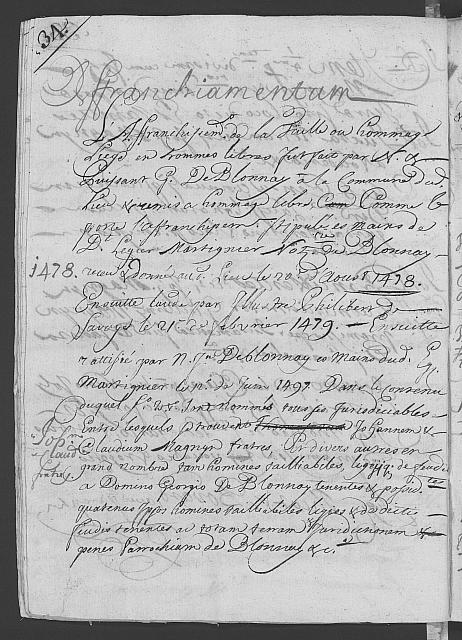 34.
Affranchiamentum
L'Affranchisem.t de la Taille ou hommag
Liege en hommes libres fut fait par N. &
Puissant G. De Blonay à la Commune dud.
Lieu & remis a hommage libre, Comme le
porte l'affranchisem.t stipulé es mains de
D.t Leger Martignier Not.re de Blonnay
1478. receu & donné aud. Lieu le 20 d'Aoust 1478.
Ensuitte laudé par Illustre Philibert de
Savoye le 21e de febvrier 1479. — Ensuitte
rattifié par N. Jn De Blonnay es Mains dud. Eg.
Martignier le de Juin 1497. Dans le contenu
duquel sont nommés tous ses Jurisdiciables
Entre lesquels se trouvent Johannem &
Claudium Magnyn fratres. Et divers autres en
grand nombre tam homines tailliabiles, ligij q. de feudis
a Domino Georgio De Blonnay tenentes &
quatenas ipsos homines tailliabiles ligios & de dicti
feudis tenentes ac totam terram Juridicionem &
penes Parrochiam de Blonnay &c.a